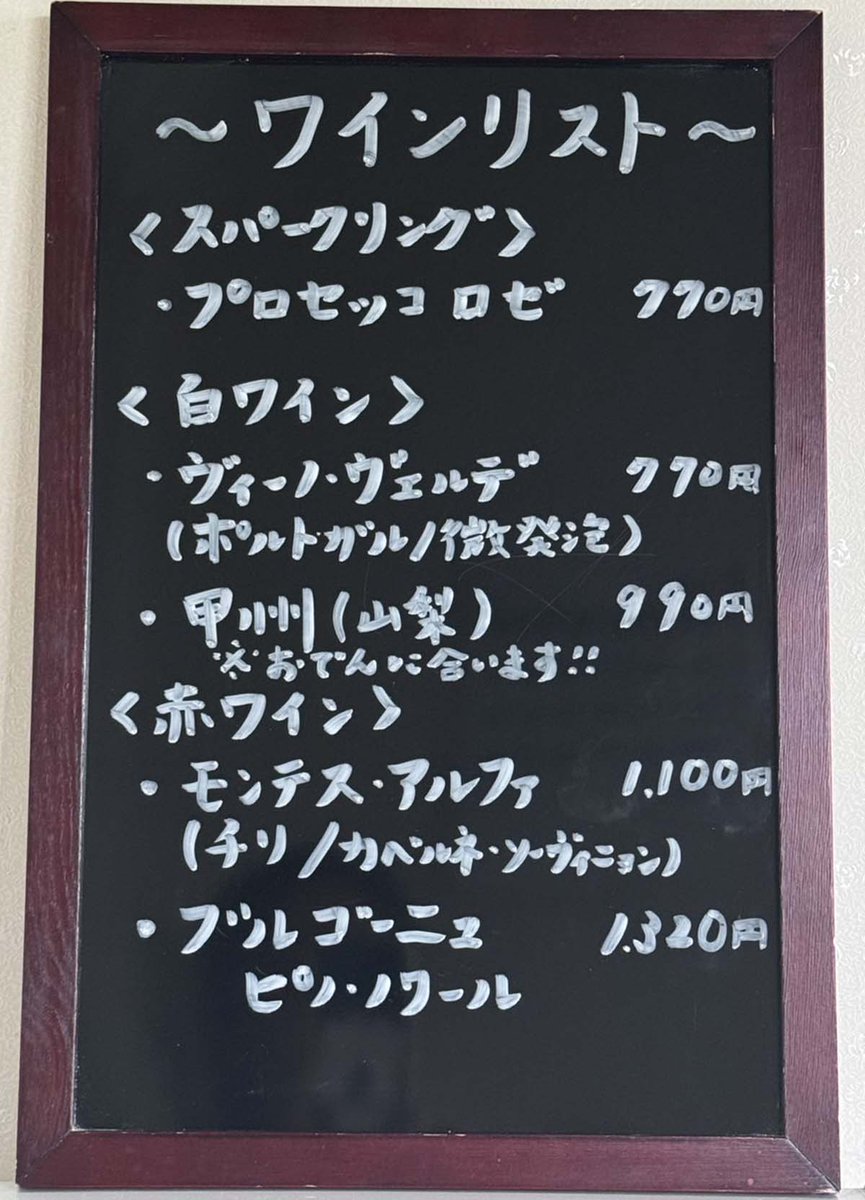 ～ワインリスト～
〈スパークリング〉
・プロセッコ ロゼ 770円
〈白ワイン〉
・ヴィーノ・ヴェルデ 770円
(ポルトガル/微発泡)
・甲州(山梨) 990円
※おでんに合います!!
〈赤ワイン〉
・モンテス・アルファ 1.100円
(チリ/カベルネ・ソーヴィニョン)
・ブルゴーニュ 1.320円
ピノ・ノワール